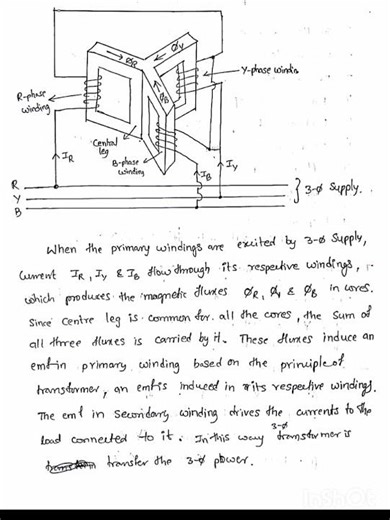 ØR
ØY
ØB
R-phase
winding
Y-phase windin
Central
leg
B-phase
winding
IR
IB
IY
R
Y
B
3-Ø Supply.
When the primary windings are excited by 3-Ø Supply,
Current IR, IY & IB flow through its respective windings,
which produces the magnetic fluxes ØR, ØY & ØB in cores.
Since Centre leg is common for all the cores, the sum of
all three fluxes is carried by it. These fluxes induce an
emf in primary winding based on the principle of
transformer, an emf is induced in its respective windings.
The emf in Secondary winding drives the currents to the
load connected to it. In this way 3-Ø transformer is
transfer the 3-Ø power.